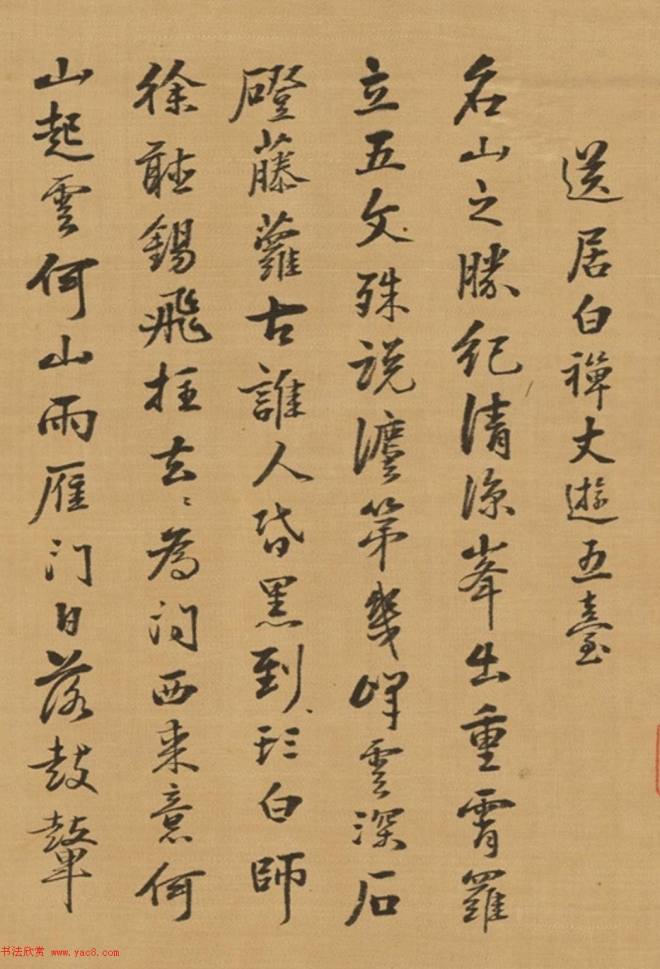 送居白禪丈遊五臺
名山之勝紀清涼峯出重霄羅
立五文殊説灋第幾峰雲深石
磴藤蘿古誰人昏黑到白師
徐聽錫飛拄去〻為问西来意何
山起雲何山雨雁门日落鼓鼙
书法欣赏 www.yac8.com